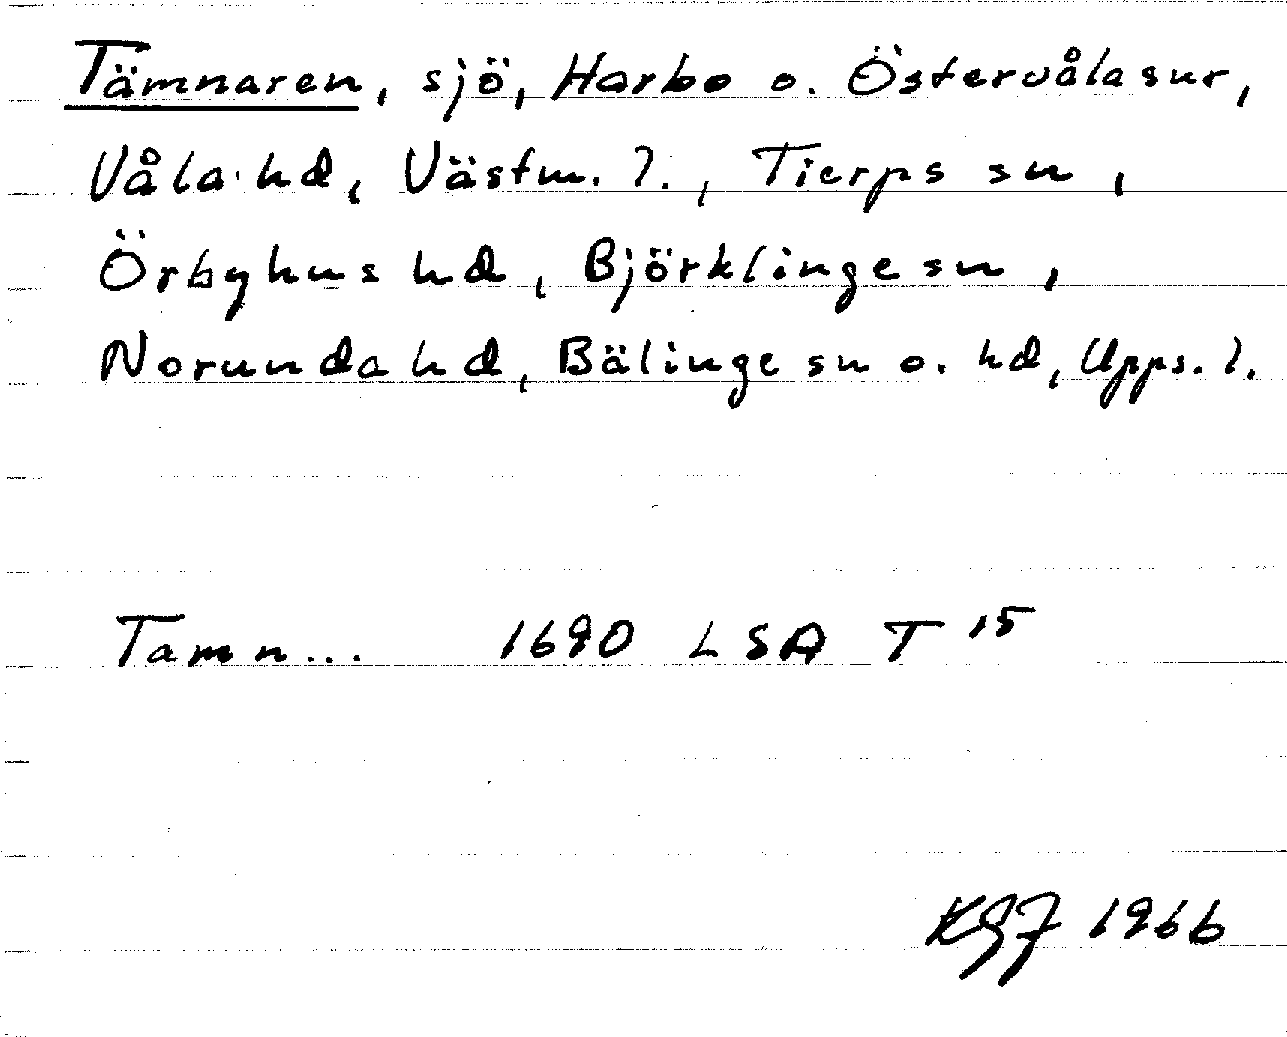 Tämnaren, sjö, Harbo o. Östervåla snr,
Våla hd, Västm. l., Tierps sn,
Örbyhus hd, Björklinge sn,
Norunda hd, Bälinge sn o. hd, Upps. l.
Tamn... 1690 LSA T 15
KGF 1966